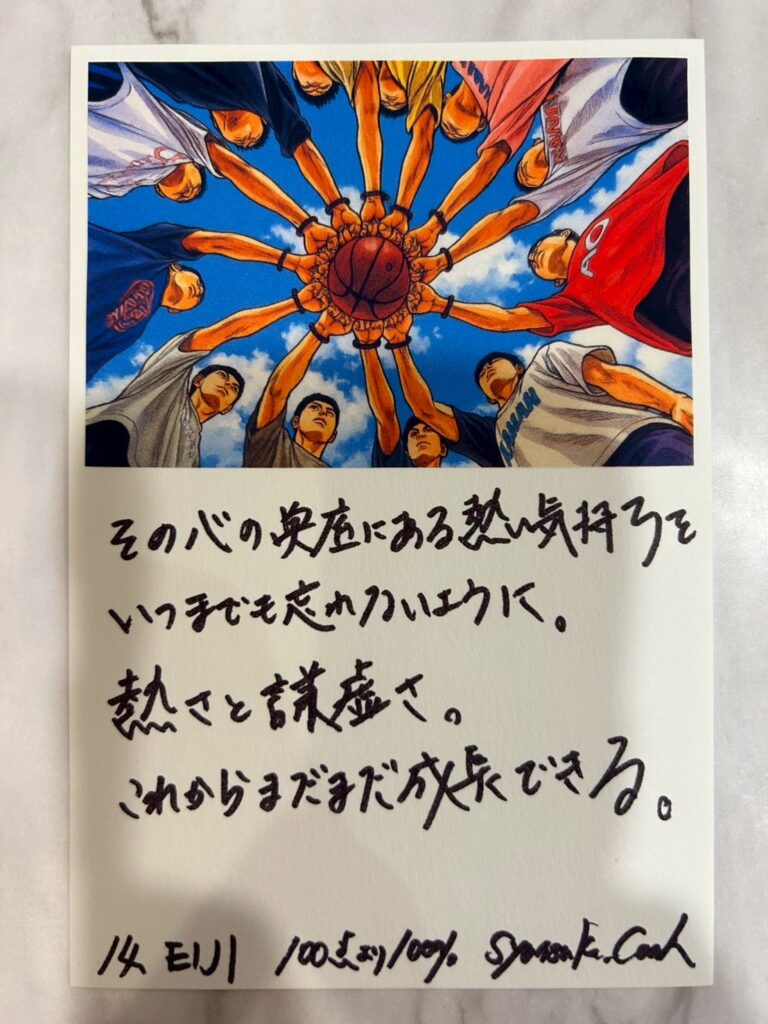 その心の奥底にある熱い気持ちを
いつまでも忘れないように。
熱さと謙虚さ。
これからまだまだ成長できる。
14 EIJI 100点より100%